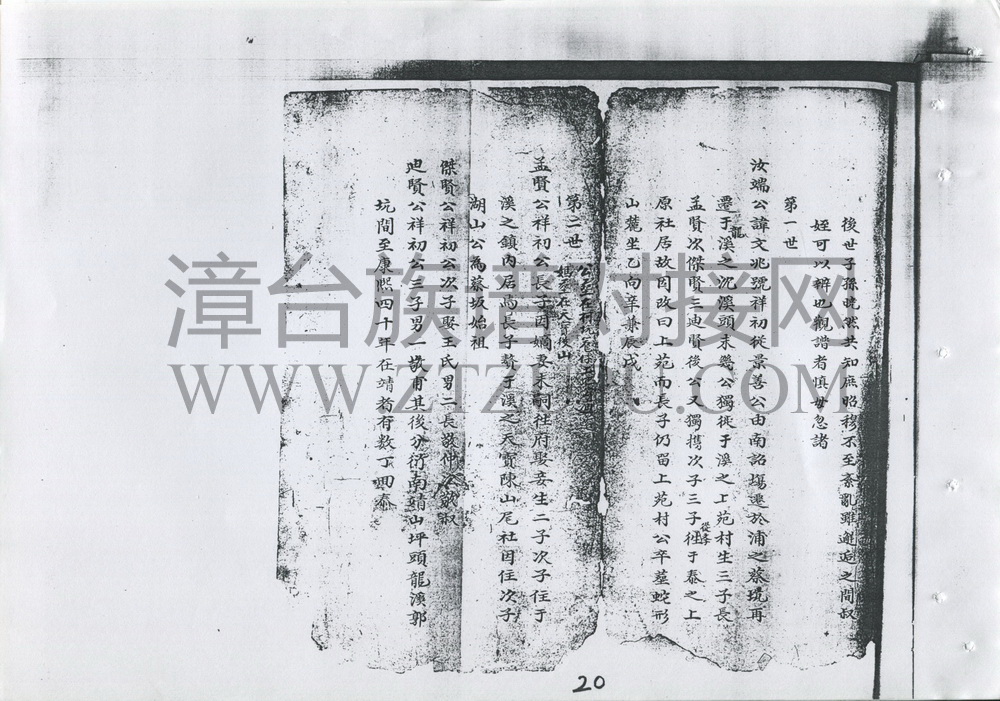 後世子孫曉然共知庶昭穆不至紊亂雖邂逅之間叔
姪可以辨也觀譜者慎毋忽諸
第一世
汝端公諱文兆號祥初從景善公由南詔塲遷於浦之蔡坑再
遷于龍溪之沈溪頭未幾公獨徙于溪之上苑村生三子長
孟賢次傑賢三廸賢後公又獨携次子三子徙于泰之上
從李
原社居故因改曰上苑而長子仍留上苑村公卒塟蛇形
山麓坐乙向辛兼辰戌
第二世
在天寶後山
孟賢公祥初公長子因嫡妻未嗣往府娶妾生二子次子住于
溪之鎮內居焉長子贅于溪之天寶陳山尾社因住次子
湖山公為蔡坂始祖
傑賢公祥初公次子娶王氏男二長敬仲次敬叔
廸賢公祥初公三子男一敬甫其後分衍南靖山坪頭龍溪郭
坑間至康熙四十年在靖者有數丁回泰
漳台族谱对接网
WWW.ZTZUPU.COM
20